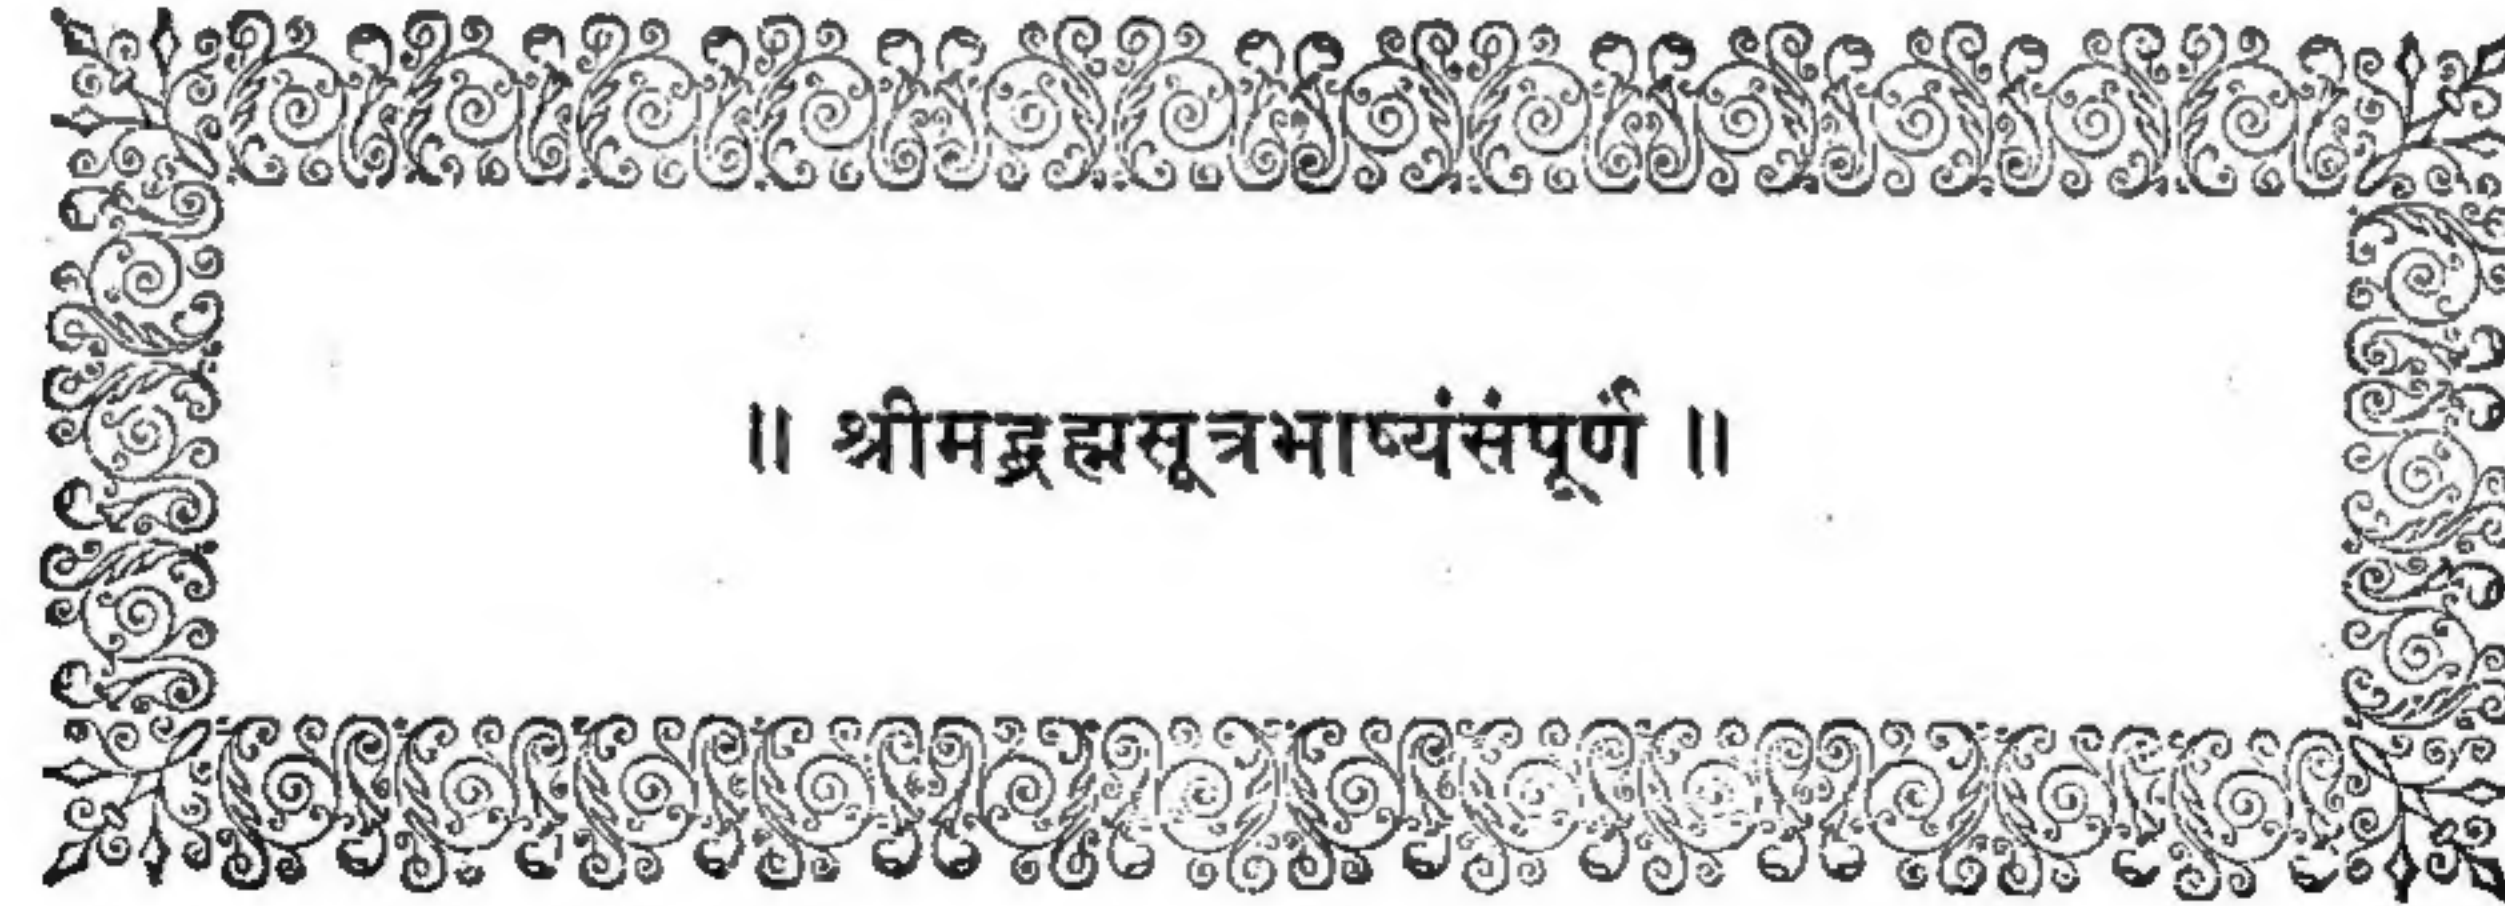 ॥ श्रीमद्ब्रह्मसूत्रभाष्यंसंपूर्णं ॥